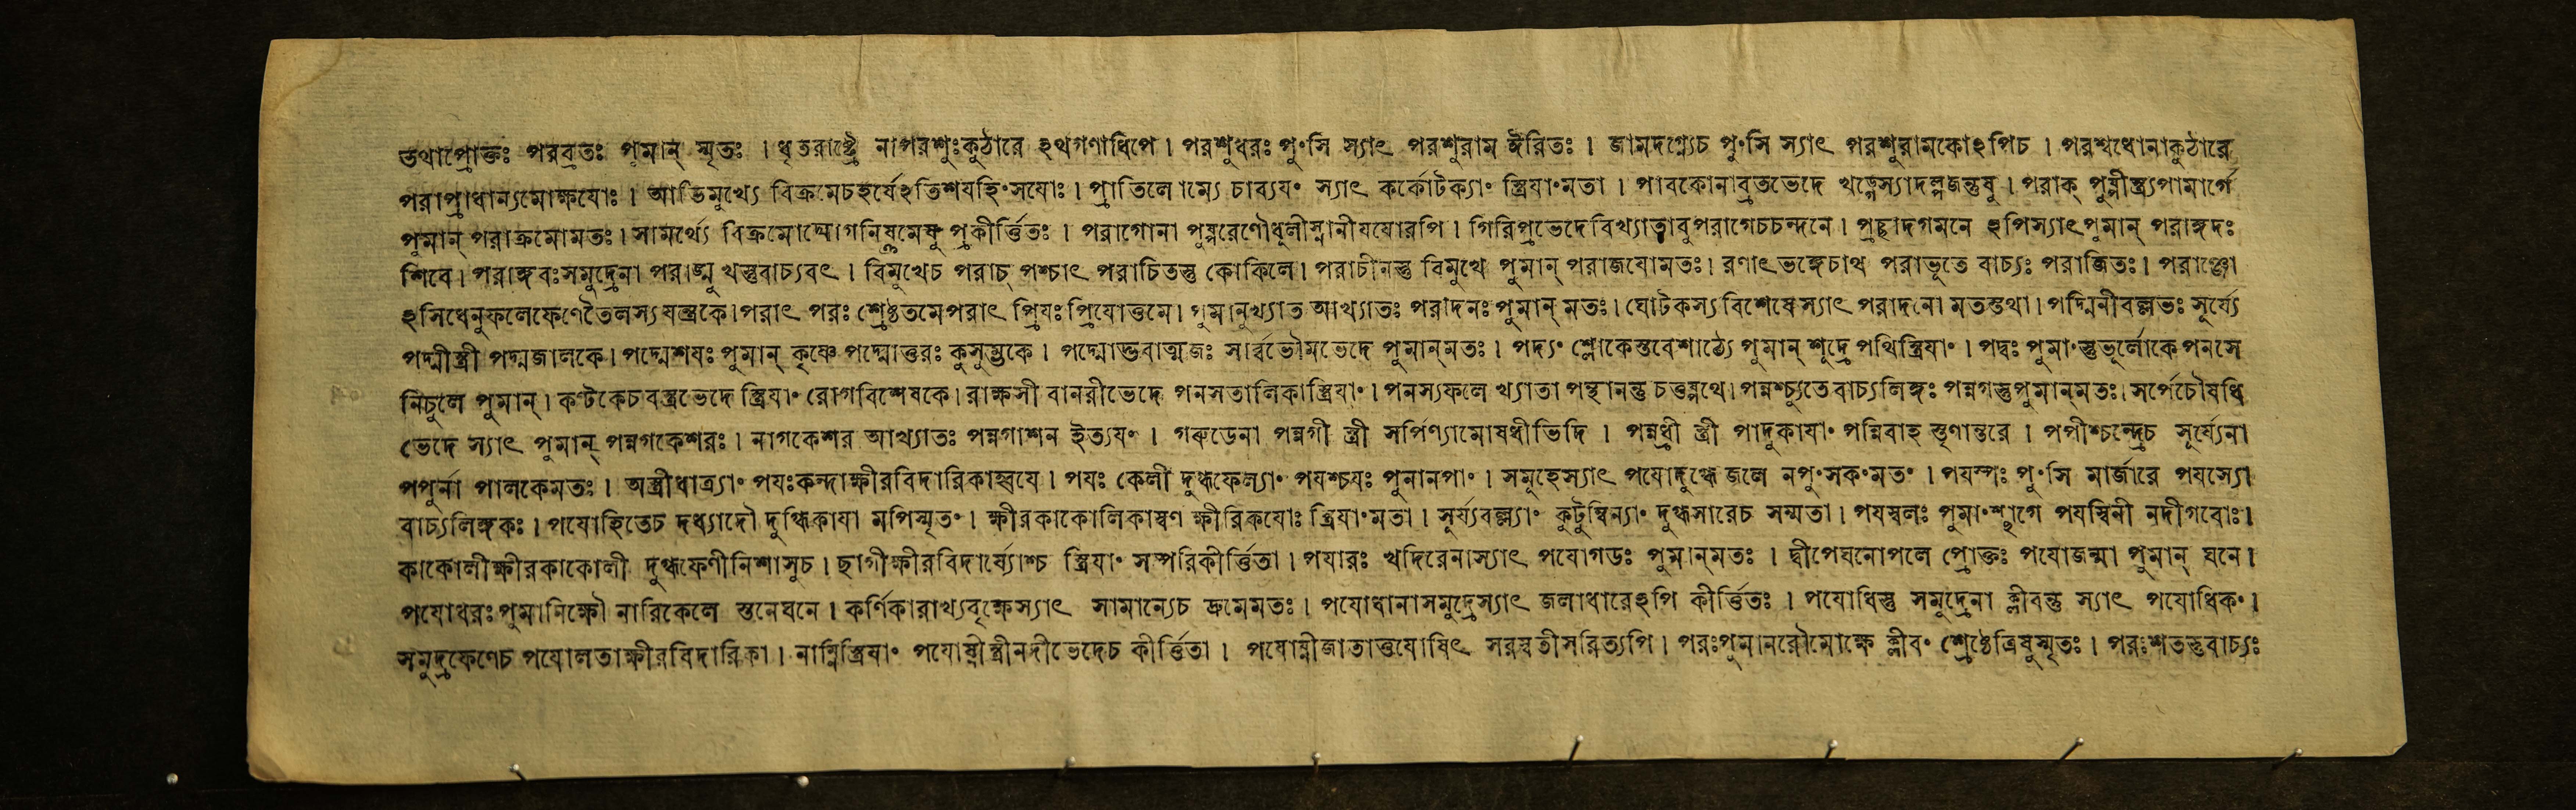 তথাপ্রোক্তঃ পরব্রতঃ পুমান্ স্মৃতঃ । ধৃতরাষ্ট্রে নাপরশুঃকুঠারে ঽথগণাধিপে । পরশুধরঃ পুংসি স্যাৎ পরশুরাম ঈরিতঃ । জামদগ্ন্যেচ পুংসি স্যাৎ পরশুরামকোঽপিচ । পরশ্বধোনাকুঠারে
পরাপ্রাধান্যমোক্ষযোঃ । আভিমুখ্যে বিক্রমেচহর্ষেঽতিশযহিংসযোঃ । প্রাতিলোম্যে চাব্যযং স্যাৎ কর্কোটক্যাং স্ত্রিযাংমতা । পাবকোনাব্রতভেদে খড়্গেস্যাদল্পজন্তুষু । পরাক্ পুষ্পীস্ত্র্যপামার্গে
পুমান্ পরাক্রমোমতঃ । সামর্থ্যে বিক্রমোদ্যোগনিষ্ক্রমেষু প্রকীর্ত্তিতঃ । পরাগোনা পুষ্পরেণৌধূলীস্নানীযযোরপি । গিরিপ্রভেদেবিখ্যাতাবুপরাগেচচন্দনে । প্রহ্লাদগমনে ঽপিস্যাৎপুমান্ পরাঙ্গদঃ
শিবে । পরাঙ্গবঃসমুদ্রেনা পরাঙ্মুখস্তুবাচ্যবৎ । বিমুখেচ পরাচ্ পশ্চাৎ পরাচিতস্তু কোকিলে । পরাচীনস্তু বিমুখে পুমান্ পরাজযোমতঃ । রণাৎভঙ্গেচাথ পরাভূতে বাচ্যঃ পরাজিতঃ । পরাঞ্জো
ঽসিধেনুফলেফেণেতৈলস্যযন্ত্রকে । পরাৎ পরঃ শ্রেষ্ঠতমেপরাৎ প্রিযঃ প্রিযোত্তমে । পুমানুখ্যাত আখ্যাতঃ পরাদনঃ পুমান্ মতঃ । ঘোটকস্যবিশেষেস্যাৎ পরাদনো মতস্তথা । পদ্মিনীবল্লভঃ সূর্য্যে
পদ্মীস্ত্রী পদ্মজালকে । পদ্মেশযঃ পুমান্ কৃষ্ণে পদ্মোত্তরঃ কুসুম্ভকে । পদ্মোত্তবাত্মজঃ সার্ব্বভৌমভেদে পুমান্‌মতঃ । পদ্যং শ্লোকেস্তবেশাঠ্যে পুমান্ শূদ্রে পথিস্ত্রিযাং । পদ্বঃ পুমাংস্তুভূর্লোকে পনসে
নিচুলে পুমান্ । কণ্টকেচবস্ত্রভেদে স্ত্রিযাং রোগবিশেষকে । রাক্ষসী বানরীভেদে পনসতালিকাস্ত্রিযাং । পনস্যফলে খ্যাতা পন্থানন্তু চত্তষ্পথে । পন্নশ্চ্যুতেবাচ্যলিঙ্গঃ পন্নগস্তুপুমান্‌মতঃ । সর্পেচৌষধি
ভেদে স্যাৎ পুমান্ পন্নগকেশরঃ । নাগকেশর আখ্যাতঃ পন্নগাশন ইত্যযং । গরুডেনা পন্নগী স্ত্রী সর্পিণ্যামোষধীভিদি । পন্নধ্রী স্ত্রী পাদুকাযাং পন্নিবাহ স্তৃণান্তরে । পপীশ্চন্দ্রেচ সূর্য্যেনা
পপুর্না পালকেমতঃ । অস্ত্রীধাত্র্যাং পযঃকন্দাক্ষীরবিদারিকাহ্বযে । পযঃ কেলী দুগ্ধফেল্যাং পযশ্চযঃ পুনানপাং । সমূহেস্যাৎ পযোদুগ্ধে জলে নপুংসকংমতং । পযস্পঃ পুংসি মার্জারে পযস্যো
বাচ্যলিঙ্গকঃ । পযোহিতেচ দধ্যাদৌ দুগ্ধিকাযা মপিস্মৃতং । ক্ষীরকাকোলিকাস্বণ ক্ষীরিকযোঃ স্ত্রিযাংমতা । সূর্য্যবল্ল্যাং কুটুম্বিন্যাং দুগ্ধসারেচ সম্মতা । পযস্বলঃ পুমাংশ্ছাগে পযস্বিনী নদীগবোঃ ।
কাকোলীক্ষীরকাকোলী দুগ্ধফেণীনিশাসুচ । ছাগীক্ষীরবিদার্য্যোশ্চ স্ত্রিযাং সম্পরিকীর্ত্তিতা । পযারঃ খদিরেনাস্যাৎ পযোগডঃ পুমান্‌মতঃ । দ্বীপেঘনোপলে প্রোক্তঃ পযোজন্মা পুমান্ ঘনে ।
পযোধরঃপুমানিক্ষৌ নারিকেলে স্তনেঘনে । কর্ণিকারাখ্যবৃক্ষেস্যাৎ সামান্যেচ দ্রুমেমতঃ । পযোধানাসমুদ্রেস্যাৎ জলাধারেঽপি কীর্ত্তিতঃ । পযোধিস্তু সমুদ্রেনা ক্লীবন্তু স্যাৎ পযোধিকং ।
সমুদ্রফেণেচ পযোলতাক্ষীরবিদারিকা । নাম্নিস্ত্রিযাং পযোষ্ণীস্ত্রীনদীভেদেচ কীর্ত্তিতা । পযোষ্ণীজাতাত্তযোষিৎ সরস্বতীসরিত্যপি । পরঃপুমানরৌমোক্ষে ক্লীবং শ্রেষ্ঠেত্রিষুস্মৃতঃ । পরঃশতন্তুবাচ্যঃ